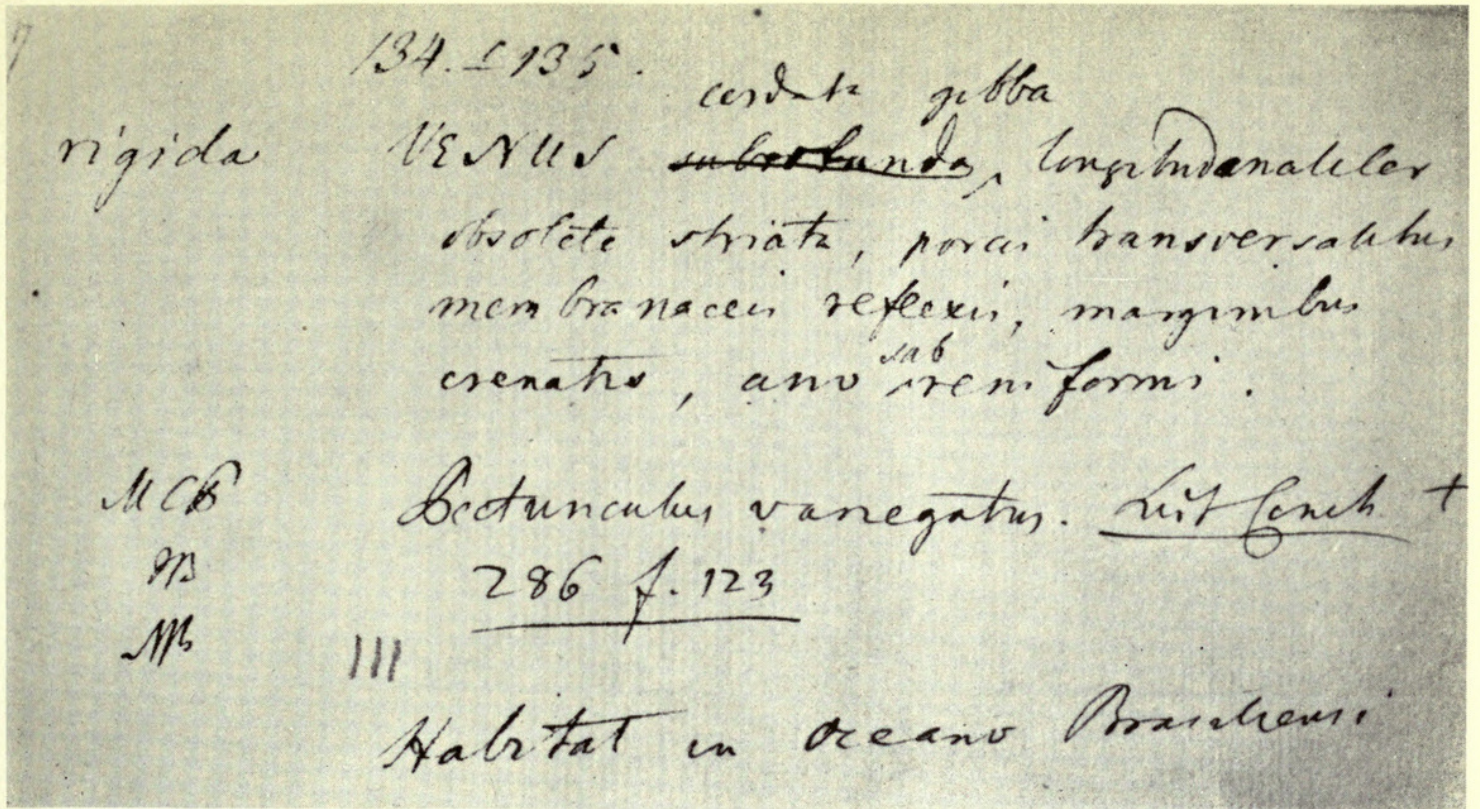 134. & 135.
cordata gibba
rigida VENUS subrotunda, longitudinaliter
obsolete striata, porcis transversalibus
membranaceis reflexis, marginibus
crenatis, ano sub reniformi.
MCB Pectunculus variegatus. List Conch +
286 f. 123
III
Habitat in Oceano Brasiliensi